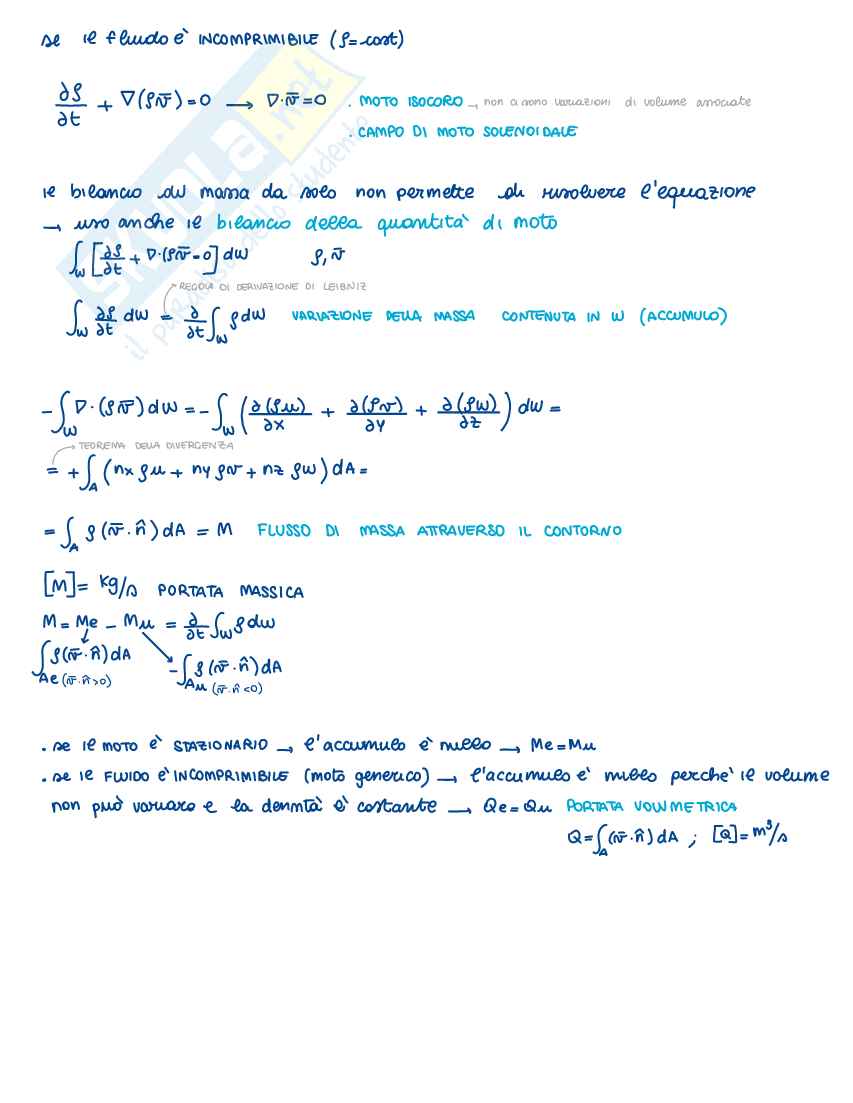 se il fluido è INCOMPRIMIBILE (ρ=cost)
∂ρ/∂t + ∇(ρv̄)=0 → ∇·v̄=0 . MOTO ISOCORO → non ci sono variazioni di volume associate
. CAMPO DI MOTO SOLENOIDALE
il bilancio di massa da solo non permette di risolvere l'equazione
→ uso anche il bilancio della quantità di moto
∫_W [∂ρ/∂t + ∇·(ρv̄=0] dW ρ, v̄
REGOLA DI DERIVAZIONE DI LEIBNIZ
∫_W ∂ρ/∂t dW = ∂/∂t ∫_W ρdW VARIAZIONE DELLA MASSA CONTENUTA IN W (ACCUMULO)
-∫_W ∇·(ρv̄)dW = -∫_W (∂(ρu)/∂x + ∂(ρv)/∂y + ∂(ρw)/∂z) dW =
TEOREMA DELLA DIVERGENZA
= +∫_A (nx ρu + ny ρv + nz ρw) dA =
= ∫_A ρ(v̄·n̂)dA = M FLUSSO DI MASSA ATTRAVERSO IL CONTORNO
[M]= kg/s PORTATA MASSICA
M = Me - Mu = ∂/∂t ∫_W ρdW
∫_Ae (v̄·n̂>0) ρ(v̄·n̂)dA -∫_Au (v̄·n̂<0) ρ(v̄·n̂)dA
. se il MOTO È STAZIONARIO → l'accumulo è nullo → Me=Mu
. se il FLUIDO È INCOMPRIMIBILE (moto generico) → l'accumulo è nullo perchè il volume
non può variare e la densità è costante → Qe=Qu PORTATA VOLUMETRICA
Q=∫_A (v̄·n̂)dA ; [Q]= m³/s
SKUOLA.net
il paradiso dello studente